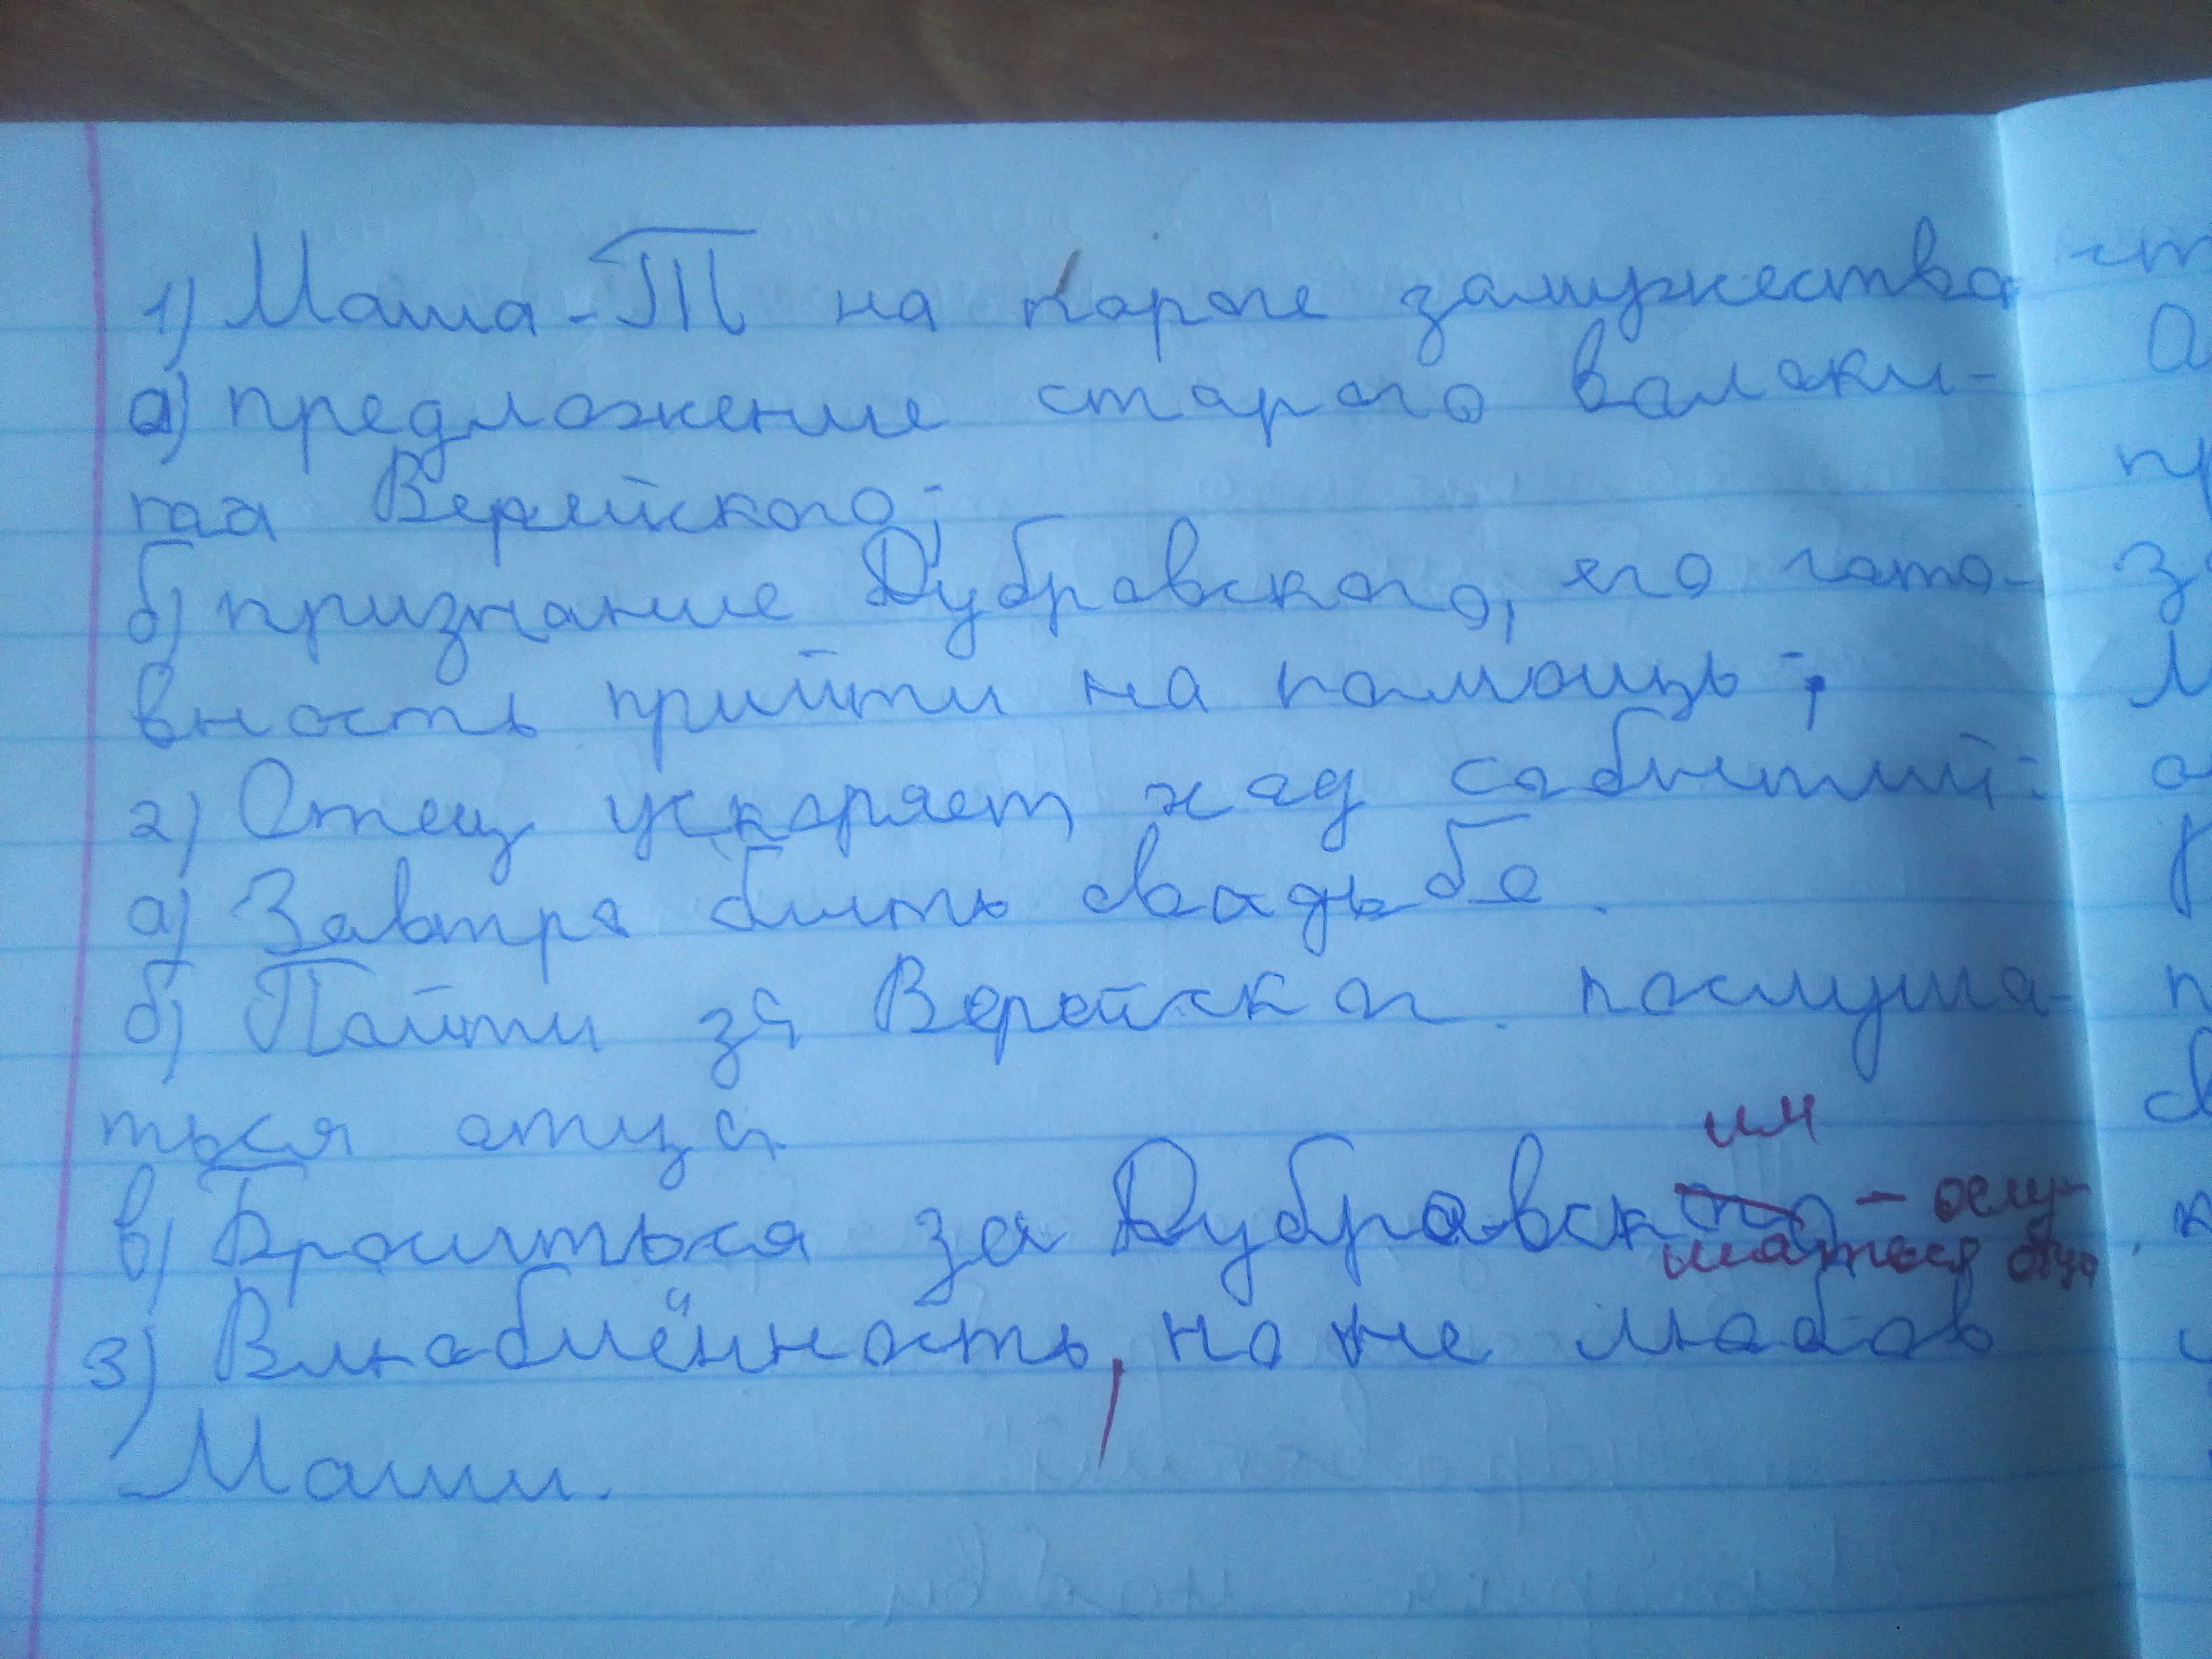 1) Маша - Т на пороге замужества
а) предложение старого волоки-
паа Верейского;
б) признание Дубровского, его гото-
вность прийти на помощь;
2) Отец ускоряет ход событий:
а) Завтра быть свадьбе.
б) Пойти за Верейског. послуша-
ться отца
им
в) Броситься за Дубровского - ослу-
шаться отца
3) Влюблённость, но не любов
Маши.